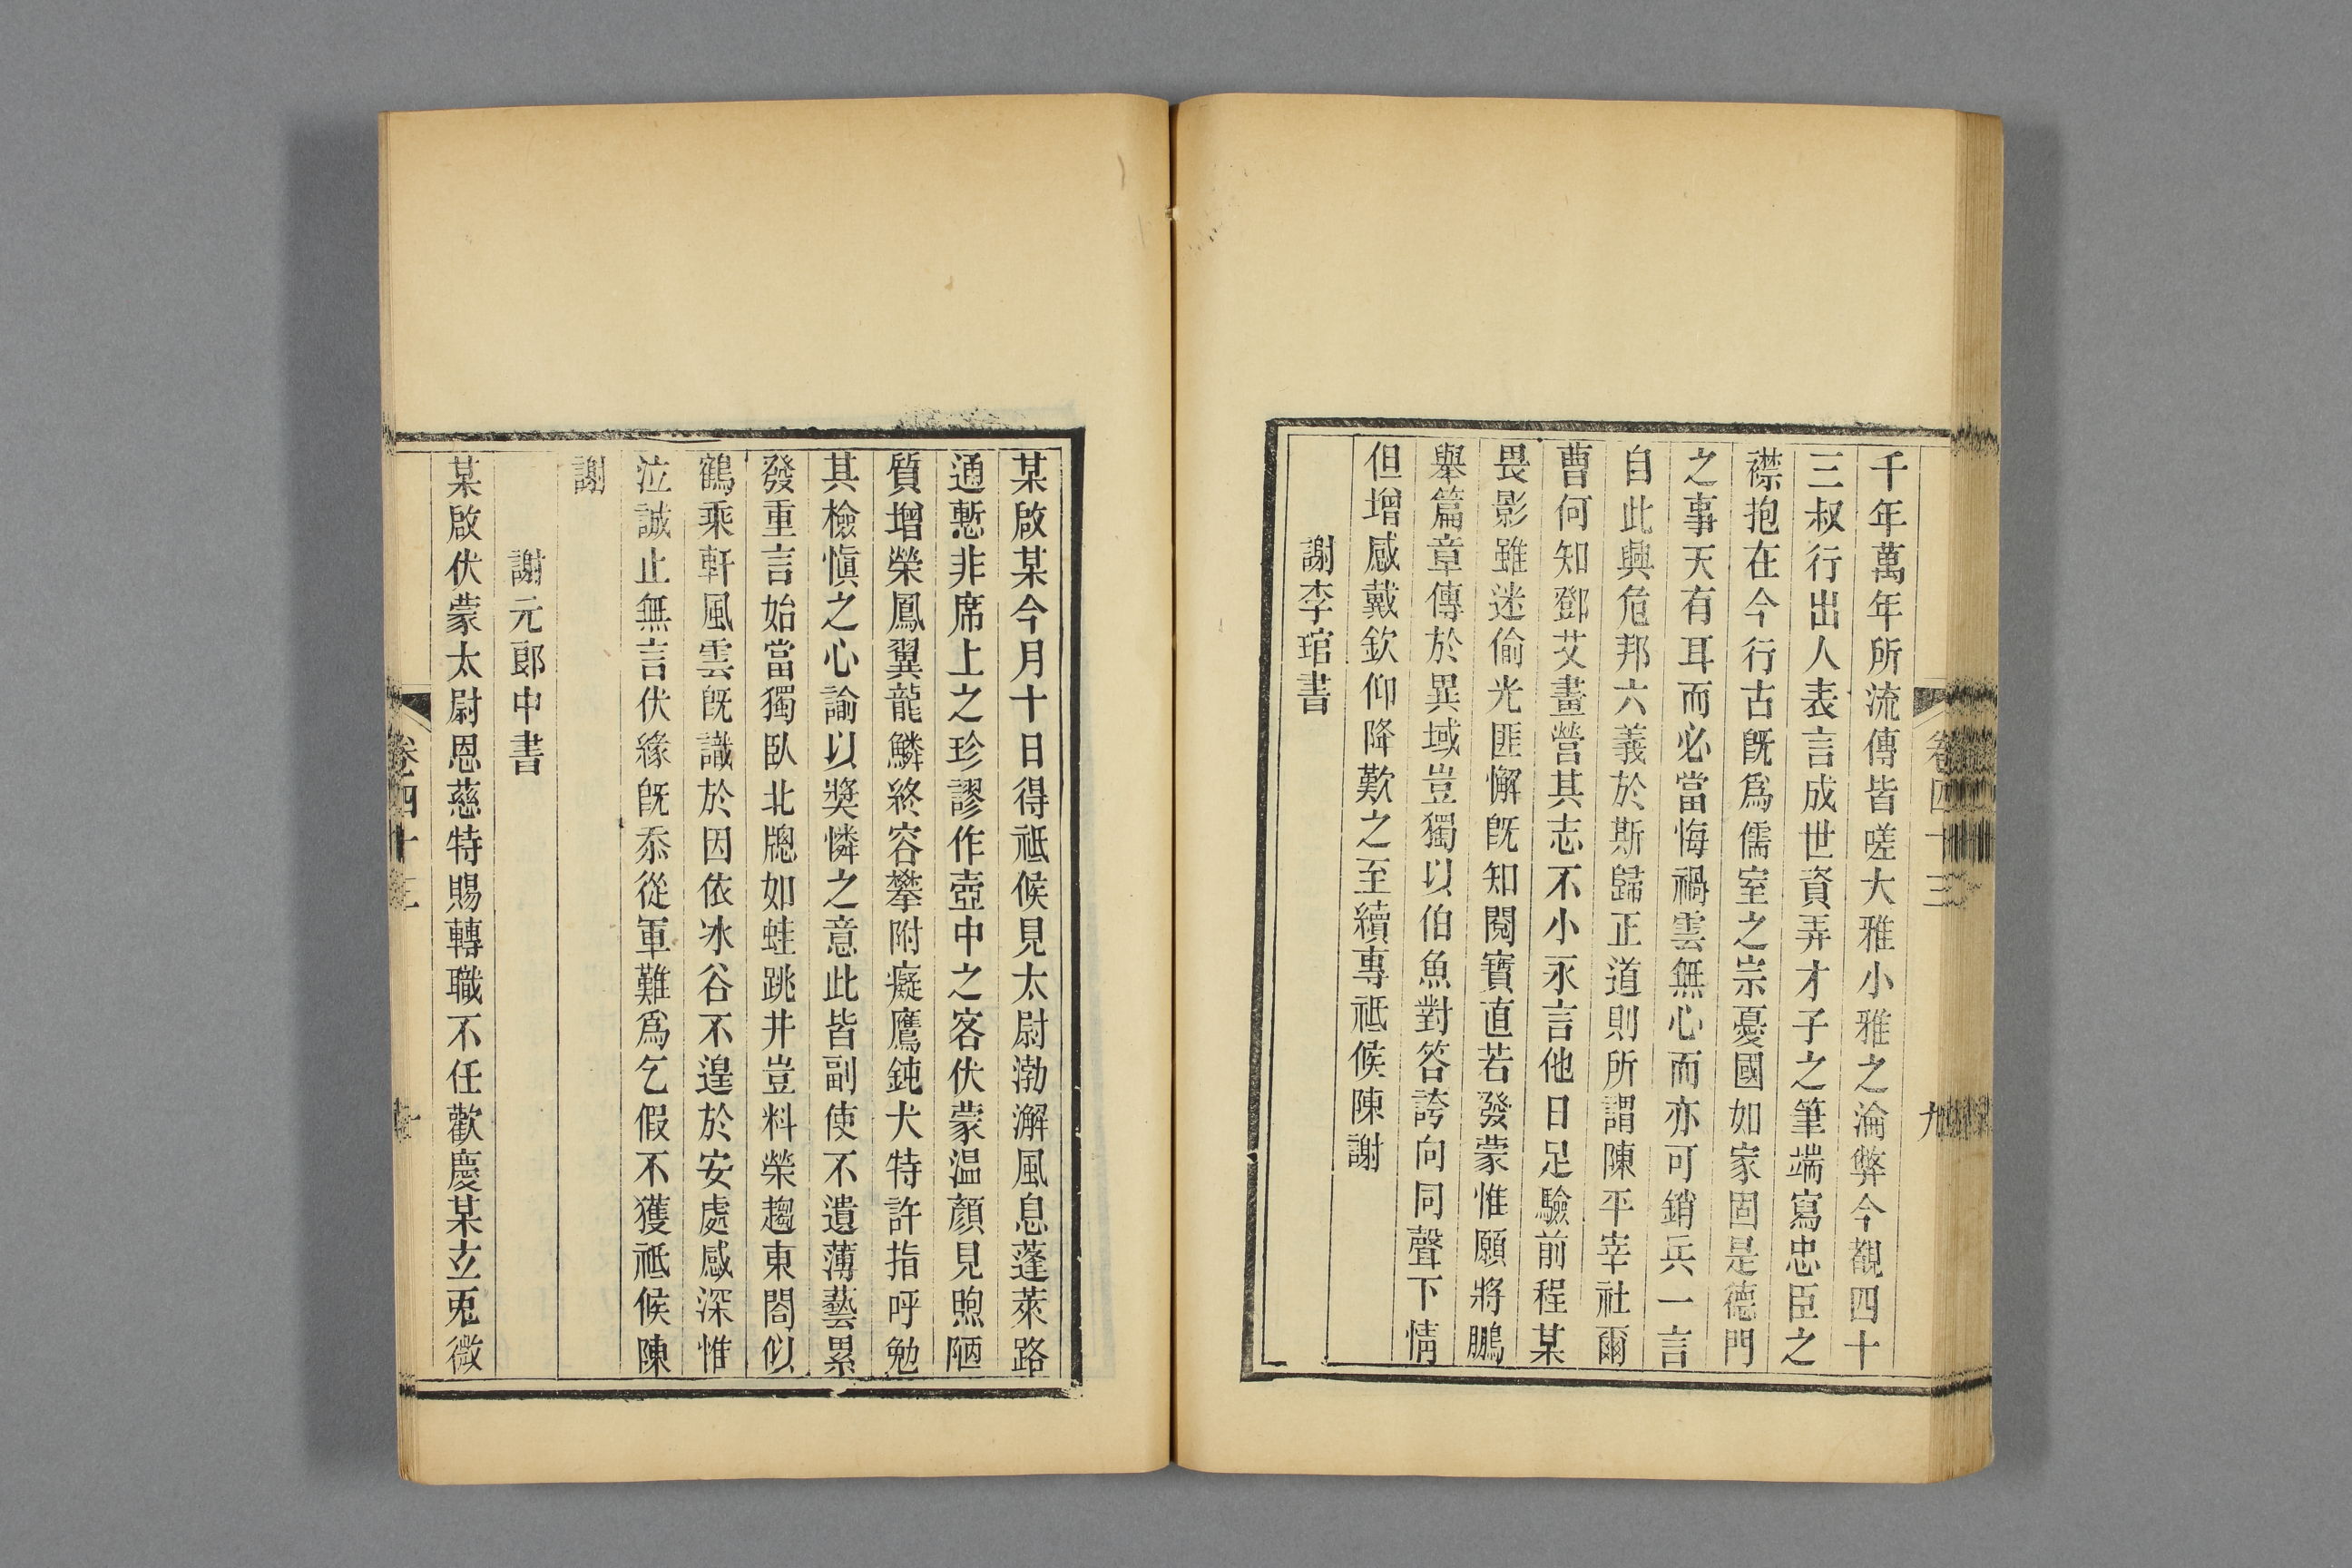 卷四十三
九
千年萬年所流傳皆嗟大雅小雅之淪弊今覩四十
三叔行出人表言成世資弄才子之筆端寫忠臣之
襟抱在今行古旣爲儒室之宗憂國如家固是德門
之事天有耳而必當悔禍雲無心而亦可銷兵一言
自此興危邦六義於斯歸正道則所謂陳平宰社爾
曹何知鄧艾畫營其志不小永言他日足驗前程某
畏影雖迷偷光匪懈旣知閱寶直若發蒙惟願將鵬
舉篇章傳於異域豈獨以伯魚對答誇向同聲下情
但增感戴欽仰降歎之至續專祗候陳謝
謝李琯書
某啟某今月十日得祗候見太尉渤澥風息蓬萊路
通慙非席上之珍謬作壺中之客伏蒙温顏見煦陋
質增榮鳳翼龍鱗終容攀附癡鷹鈍犬特許指呼勉
其檢愼之心諭以獎憐之意此皆副使不遺薄藝累
發重言始當獨臥北牕如蛙跳井豈料榮趨東閤似
鶴乘軒風雲旣識於因依冰谷不遑於安處感深惟
泣誠止無言伏緣旣忝從軍難爲乞假不獲祗候陳
謝
謝元郎中書
某啟伏蒙太尉恩慈特賜轉職不任歡慶某立㒵微
卷四十三
十